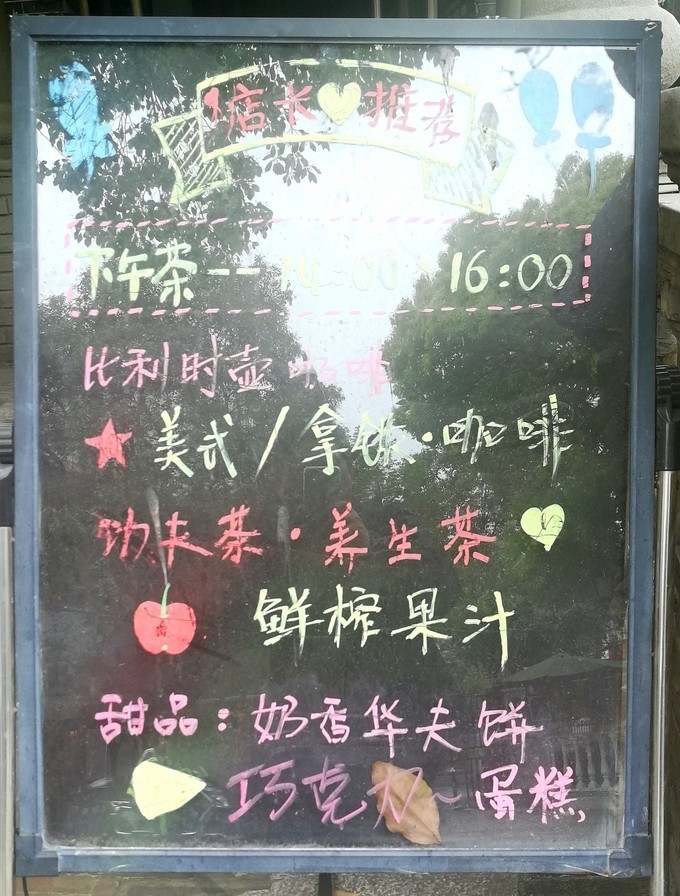 店长推荐
下午茶--14:00~16:00
比利时壶咖啡
美式/拿铁·咖啡
功夫茶·养生茶
鲜榨果汁
甜品:奶香华夫饼
巧克力~蛋糕